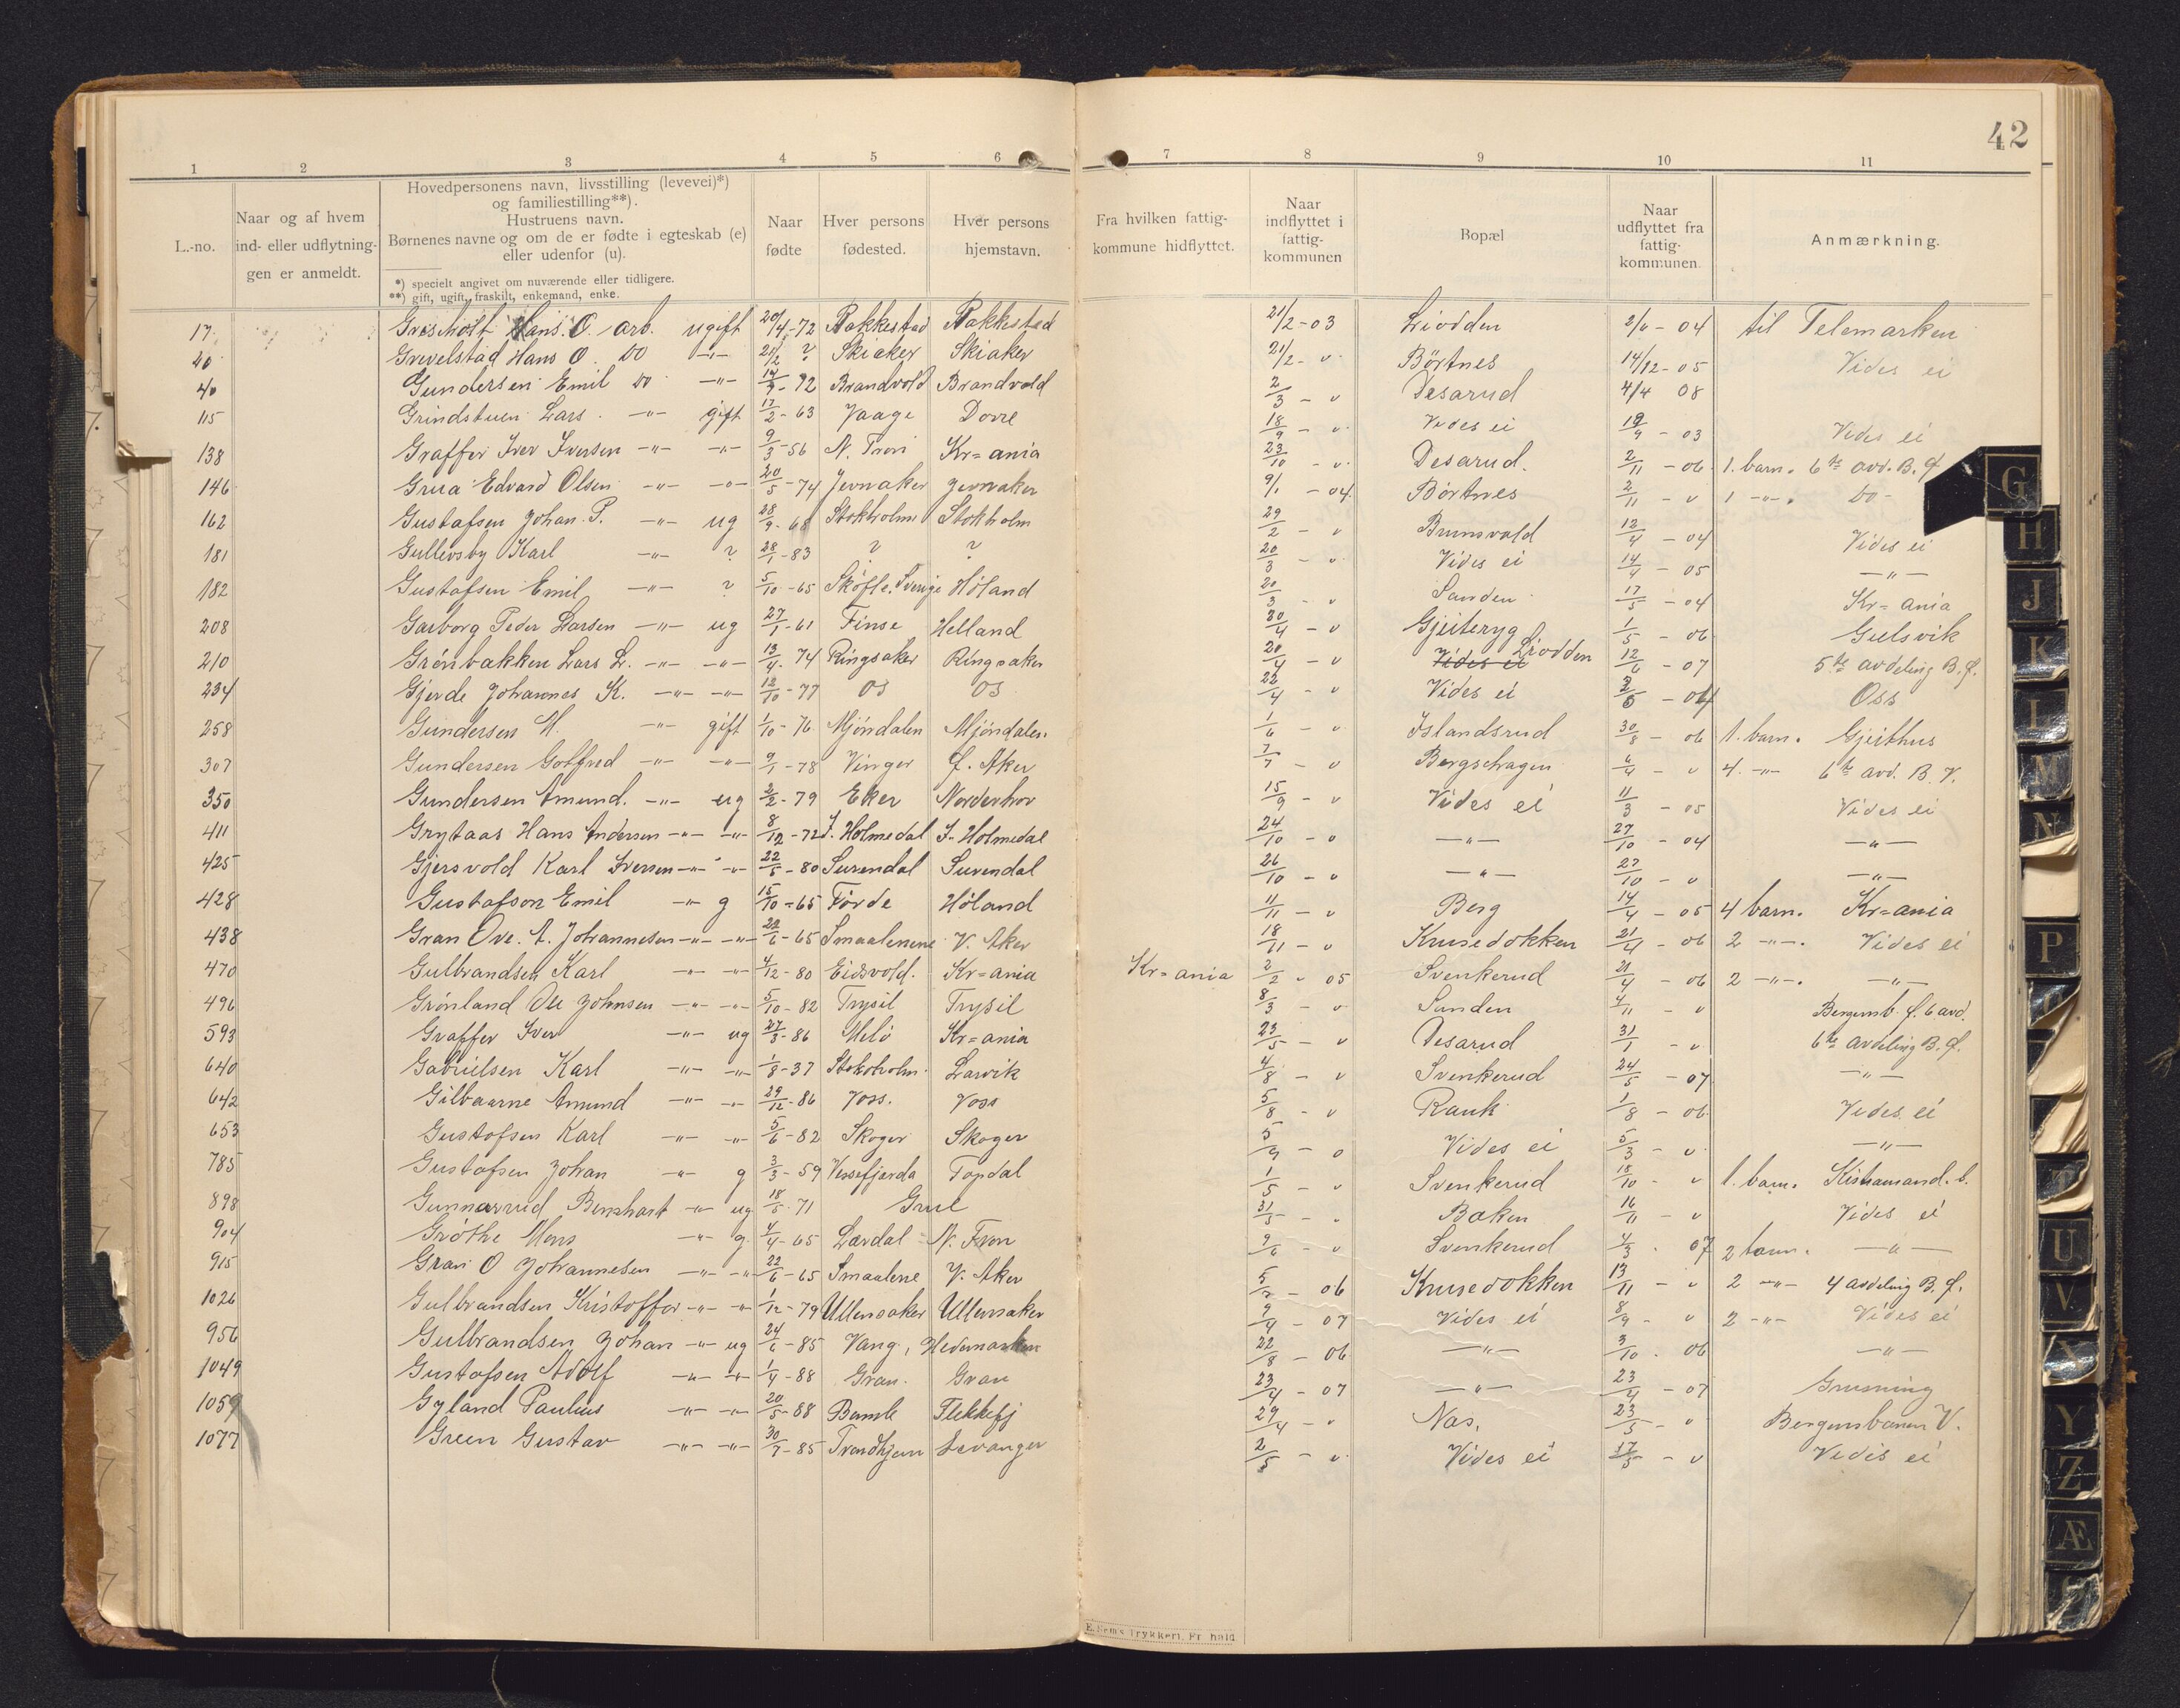 42
1 2 3 4 5 6 7 8 9 10 11
L.-no.
Naar og af hvem
ind- eller udflytnin-
gen er anmeldt.
Hovedpersonens navn, livsstilling (levevei)*)
og familiestilling**).
Hustruens navn.
Børnenes navne og om de er fødte i egteskab (e)
eller udenfor (u).
*) specielt angivet om nuværende eller tidligere.
**) gift, ugift, fraskilt, enkemand, enke.
Naar
fødte
Hver persons
fødested.
Hver persons
hjemstavn.
Fra hvilken fattig-
kommune hidflyttet.
Naar
indflyttet i
fattig-
kommunen
Bopæl
Naar
udflyttet fra
fattig-
kommunen.
Anmærkning.
17 Hans O. arb. ugift 20/4-72 Rakkestad Rakkestad 21/2-03 Liodden 2/6-04 til Telemarken
20 Grevelstad Hans O. Do -"- 21/2 ? Skiaker Skiaker 21/2-" Börtnes 14/12-05 Vides ei
40 Gundersen Emil Do -"- 14/9-72 Brandvold Brandvold 2/3-" Desarud 4/4 08
115 Grindstuen Lars -"- gift 17/2-63 Vaage Dovre 18/9-" Vides ei 19/9-03 Vides ei
138 Graffer Iver Iversen -"- -"- 9/3-56 N. Fron Kr=ania 23/10-" Desarud. 2/11-06 1. barn. 6te avd. B. f
146 Grua Edvard Olsen -"- -"- 20/5-74 Jevnaker Jevnaker 9/1-04 Börtnes 2/11-" 1 -"-. Do-
162 Gustafsen Johan P. -"- ug 28/9-68 Stokholm Stokholm 29/2-" Brunsvald 12/4-04 Vides ei
181 Gullersby Karl -"- ? 28/1-83 ? ? 20/3-" Vides ei 14/4-05 -"-
182 Gustafsen Emil -"- ? 5/10-65 Sköfle. Sverige Höland 20/3-" Sanden 17/5-04 Kr=ania
208 Garborg Peder Larsen -"- ug 27/1-61 Finse Helland 30/4-" Gjeiteryg 1/5-06 Gulsvik
210 Grönbakken Lars L. -"- -"- 13/4-74 Ringsaker Ringsaker 20/4-" Vides ei Liodden 12/6-07 5te avdeling B. f.
234 Gjerde Johannes K. -"- -"- 12/10-77 Os Os 22/4-" Vides ei 3/5-04 Oss
258 Gundersen M. -"- gift 1/10-76 Mjöndalen Mjöndalen 1/6-" Islandsrud 30/8-06 1. barn. Gjeithus
307 Gundersen Gotfred -"- -"- 9/1-78 Vinger Ö. Aker 7/7-" Bergsehagen 6/4-" 4. -"- 6te avd. B. V.
350 Gundersen Amund. -"- ug 2/2-79 Eker Norderhov 15/9-" Vides ei 11/3-05 Vides ei
411 Grytaas Hans Andersen -"- -"- 8/12-72 I. Holmedal I. Holmedal 24/10-" -"- 27/10-04 -"-
425 Gjersvold Karl Iversen -"- -"- 22/5-80 Surendal Surendal 26/10-" -"- 27/10-" -"-
428 Gustafson Emil -"- g 15/10-65 Förde Höland 11/11-" Berg 14/4-05 4 barn. Kr=ania
438 Gran Ove. A. Johannesen -"- -"- 22/6-65 Smaalenene V. Aker 18/11-" Krusedokken 21/4-06 2 -"-. Vides ei
470 Gulbrandsen Karl -"- -"- 4/12-80 Eidsvold. Kr=ania Kr=ania 2/2-05 Svenkerud 21/4-06 2 -"-. -"-
496 Grönland Ole Johnsen -"- -"- 5/10-82 Trysil Trysil 8/3-" Sanden 4/11-" Bergensb. f. 6 avd.
593 Graffer Iver -"- ug 27/3-86 Melö Kr=ania 23/5-" Desarud 31/1-" 6te avdeling B. f.
640 Gabrielsen Karl -"- -"- 1/8-37 Stokoholm. Larvik 4/8-" Svenkerud 24/5-07 -"-
642 Gilbaarne Amund -"- -"- 29/12-86 Voss. Voss 5/8-" Rauk 1/8-06 Vides ei
653 Gustofsen Karl -"- -"- 5/6-82 Skoger Skoger 5/9-" Vides ei 5/3-" -"-
785 Gustafsen Johan -"- g 3/3-59 Topdal 1/5-" Svenkerud 18/10-" 1. barn.
898 Gunnarrud Bernhart -"- ug 18/5-71 Grue 31/5-" Baken 16/11-" Vides ei
904 Gröthe Mons -"- g. 4/4-65 Lærdal N. Fron 9/6-" Svenkerud 4/3-07 2 barn. -"-
915 Gran O Johannesen -"- -"- 22/6-65 Smaalene V. Aker 5/7-06 Krusedokken 13/11-" 2 -"- 4 avdeling B. f.
1026 Gulbrandsen Kristoffer -"- -"- 1/12-79 Ullensaker Ullensaker 9/4-07 Vides ei 8/4-" 2 -"- Vides ei
956 Gulbrandsen Johan -"- ug 24/6-85 Vang, Hedemarken 22/8-06 -"- 3/10-06 -"-
1049 Gustafsen Adolf -"- -"- 1/4-88 Gran. Gran 23/4-07 -"- 23/4-07
1059 Gyland Paulius -"- -"- 20/5-88 Bamle Flekkefj 29/4-" Nas. 23/5-" Bergensbanen V.
1077 Green Gustav -"- -"- 30/7-85 Trondhjem Levanger 2/5-" Vides ei 17/5-" Vides ei
G
H
J
K
L
M
N
P
U
V
X
Y
Z
Æ
E. Sem's Trykkeri, Fr.hald